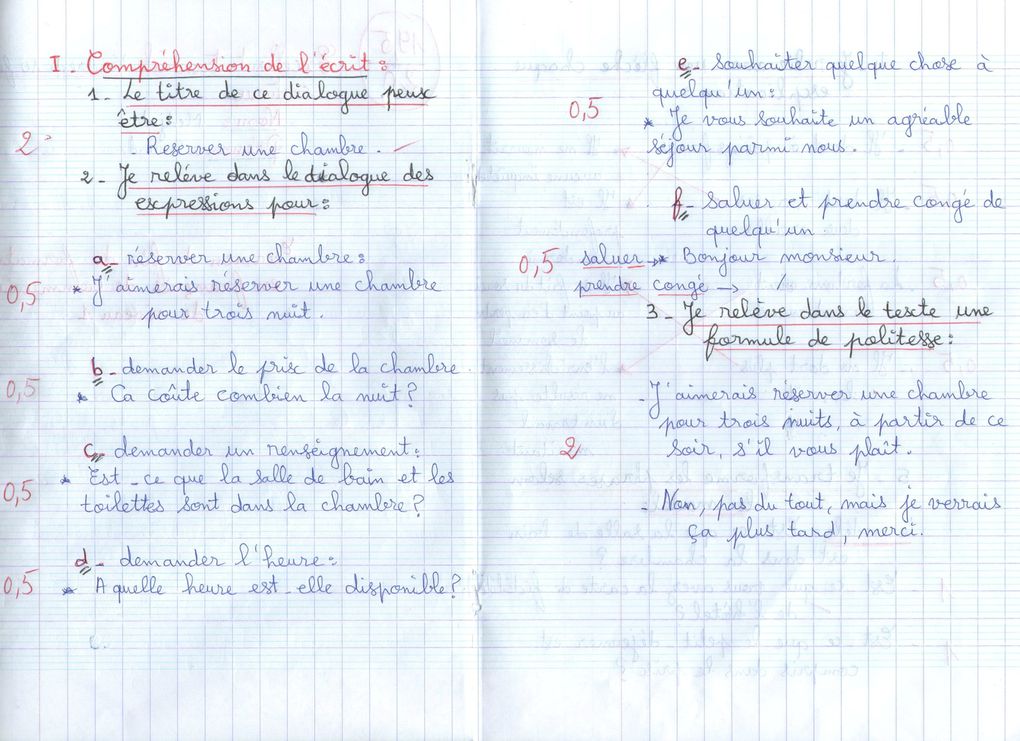 I. Compréhension de l'écrit :
1- Le titre de ce dialogue peux
être :
2
- Reserver une chambre.
2- Je reléve dans le dialogue des
expressions pour :
a- réserver une chambre :
0,5
* J'aimerais réserver une chambre
pour trois nuit.
b- demander le prix de la chambre.
0,5
* Ca coûte combien la nuit ?
c- demander un renseignement :
0,5
* Est-ce que la salle de bain et les
toilettes sont dans la chambre ?
d- demander l'heure :
0,5
* A quelle heure est-elle disponible ?
e- Souhaiter quelque chose à
quelqu'un :
0,5
* Je vous souhaite un agréable
séjour parmi nous.
f- Saluer et prendre congé de
quelqu'un
0,5
saluer → * Bonjour monsieur.
prendre congé → /
3- Je relève dans le texte une
formule de politesse :
- J'aimerais réserver une chambre
pour trois nuits, à partir de ce
2
soir, s'il vous plaît.
- Non, pas du tout, mais je verrais
ça plus tard, merci.